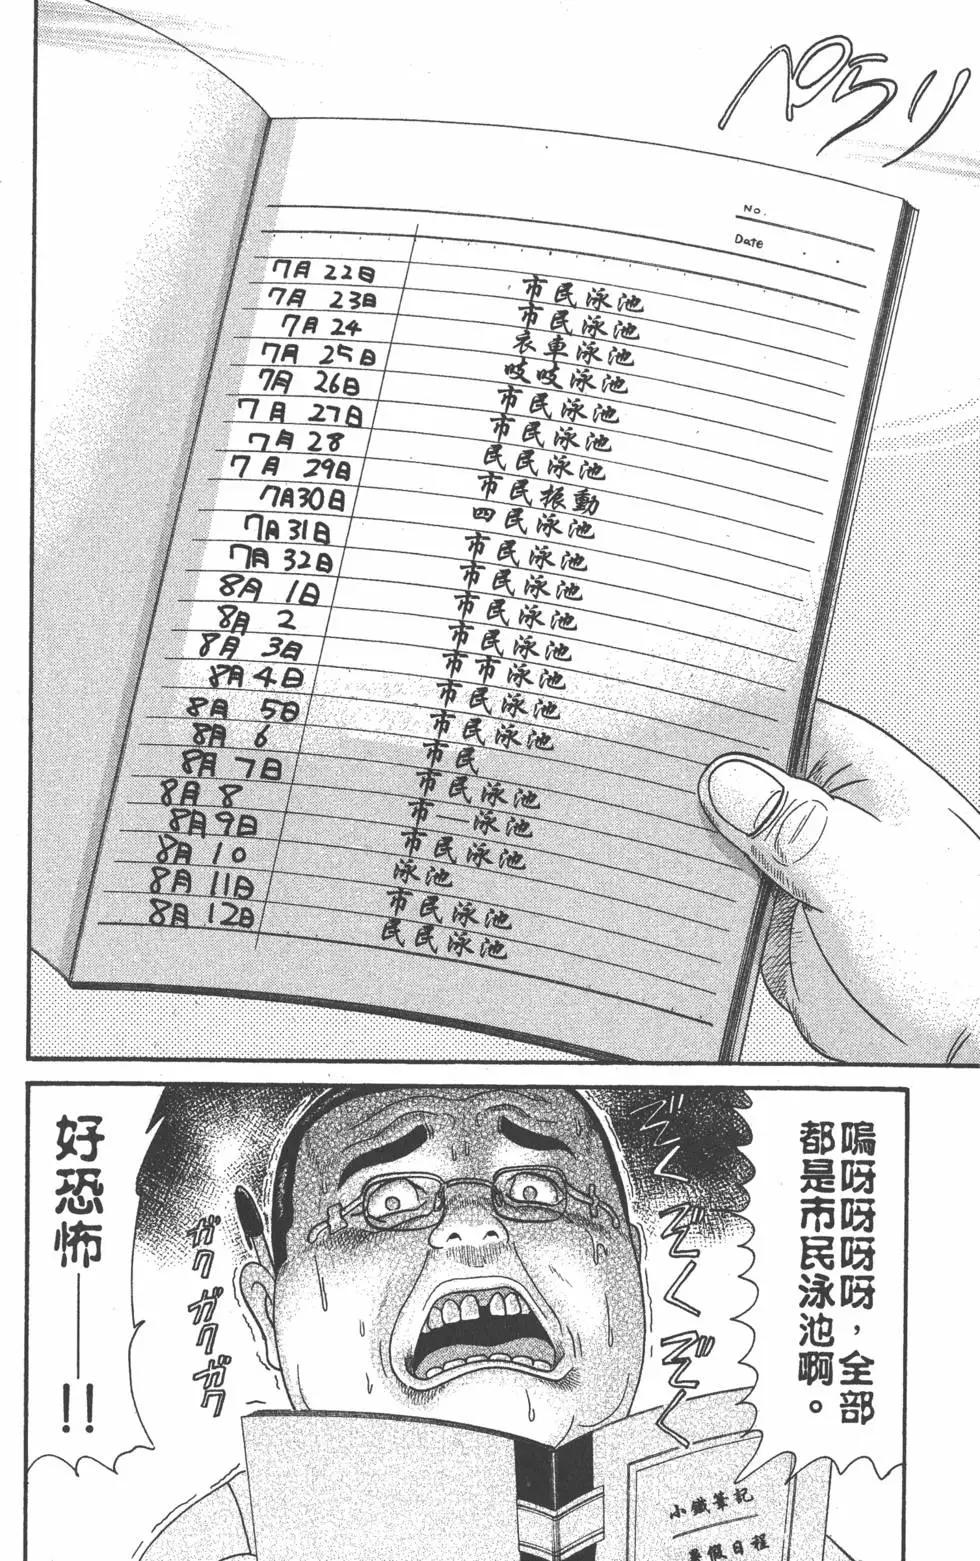 ぺらり
No.
Date
7月22日 市民泳池
7月23日 市民泳池
7月24 衣車泳池
7月25日 吱吱泳池
7月26日 市民泳池
7月27日 市民泳池
7月28 民民泳池
7月29日 市民振動
7月30日 四民泳池
7月31日 市民泳池
7月32日 市民泳池
8月1日 市民泳池
8月2 市民泳池
8月3日 市市泳池
8月4日 市民泳池
8月5日 市民泳池
8月6 市民
8月7日 市民泳池
8月8 市一泳池
8月9日 市民泳池
8月10 泳池
8月11日 市民泳池
8月12日 民民泳池
嗚呀呀呀呀，全部
都是市民泳池啊。
ぞくぞく
ガクガクガク
好恐怖——!!
小鐵筆記
暑假日程